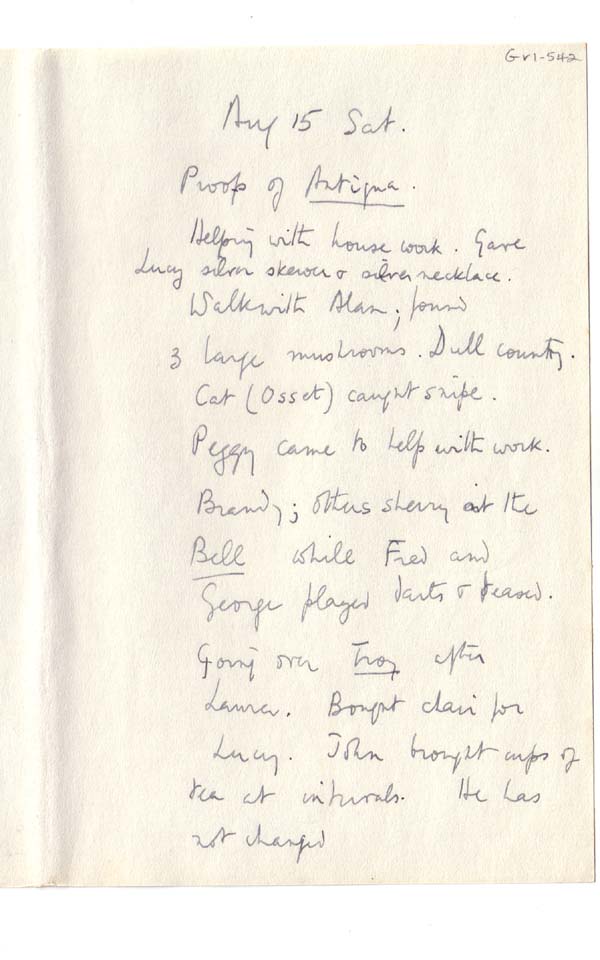 Gr1-542
Aug 15 Sat.
Proofs of Antigua.
Helping with house work. Gave
Lucy silver skewer & silver necklace.
Walk with Alan; found
3 large mushrooms. Dull country.
Cat (Osset) caught snipe.
Peggy came to help with work.
Brandy; others sherry at the
Bell while Fred and
George played darts & teased.
Going over Troy after
Laura. Bought chair for
Lucy. John brought cups of
tea at intervals. He has
not changed